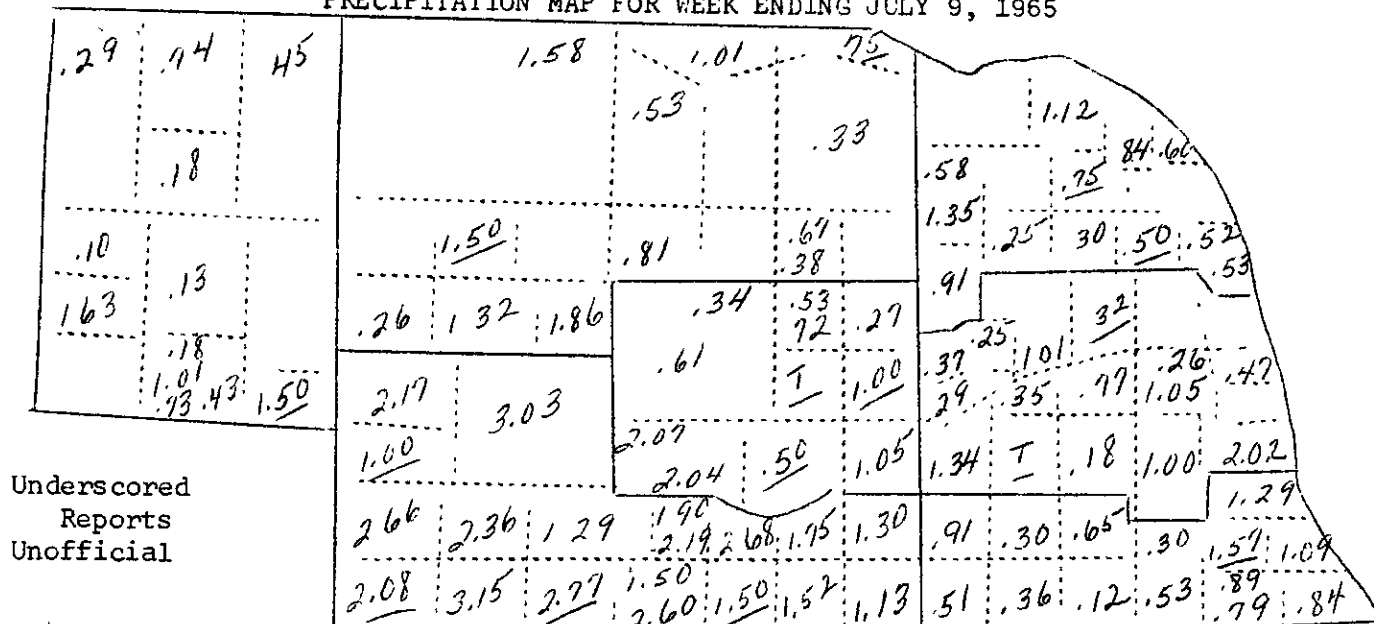 PRECIPITATION MAP FOR WEEK ENDING JULY 9, 1965
.29 .74 45 1.58 1.01 .75
.53 .33 1.12
.18 .58 .75 84 .60
1.35 .25 30 .50 .52
.10 .13 1.50 .81 .67
.38 .91 .53
163 .26 1 32 1.86 .34 .53
72 .27 32
.18 .61 T 1.00 .37 .25 101 .26 .47
1.01
.73 .43 1.50 2.17 3.03 29 .35 .77 1.05
1.00 2.07
2.04 .50 1.05 1.34 T .18 1.00 2.02
Underscored
Reports
Unofficial
266 2.36 1 29 1 90
2.19 2 68 1.75 1.30 .91 .30 .65 .30 1.29
1.57 1.09
2.08 3.15 2.77 1.50
2.60 1.50 1.52 1.13 .51 .36 .12 .53 .89
.79 .84